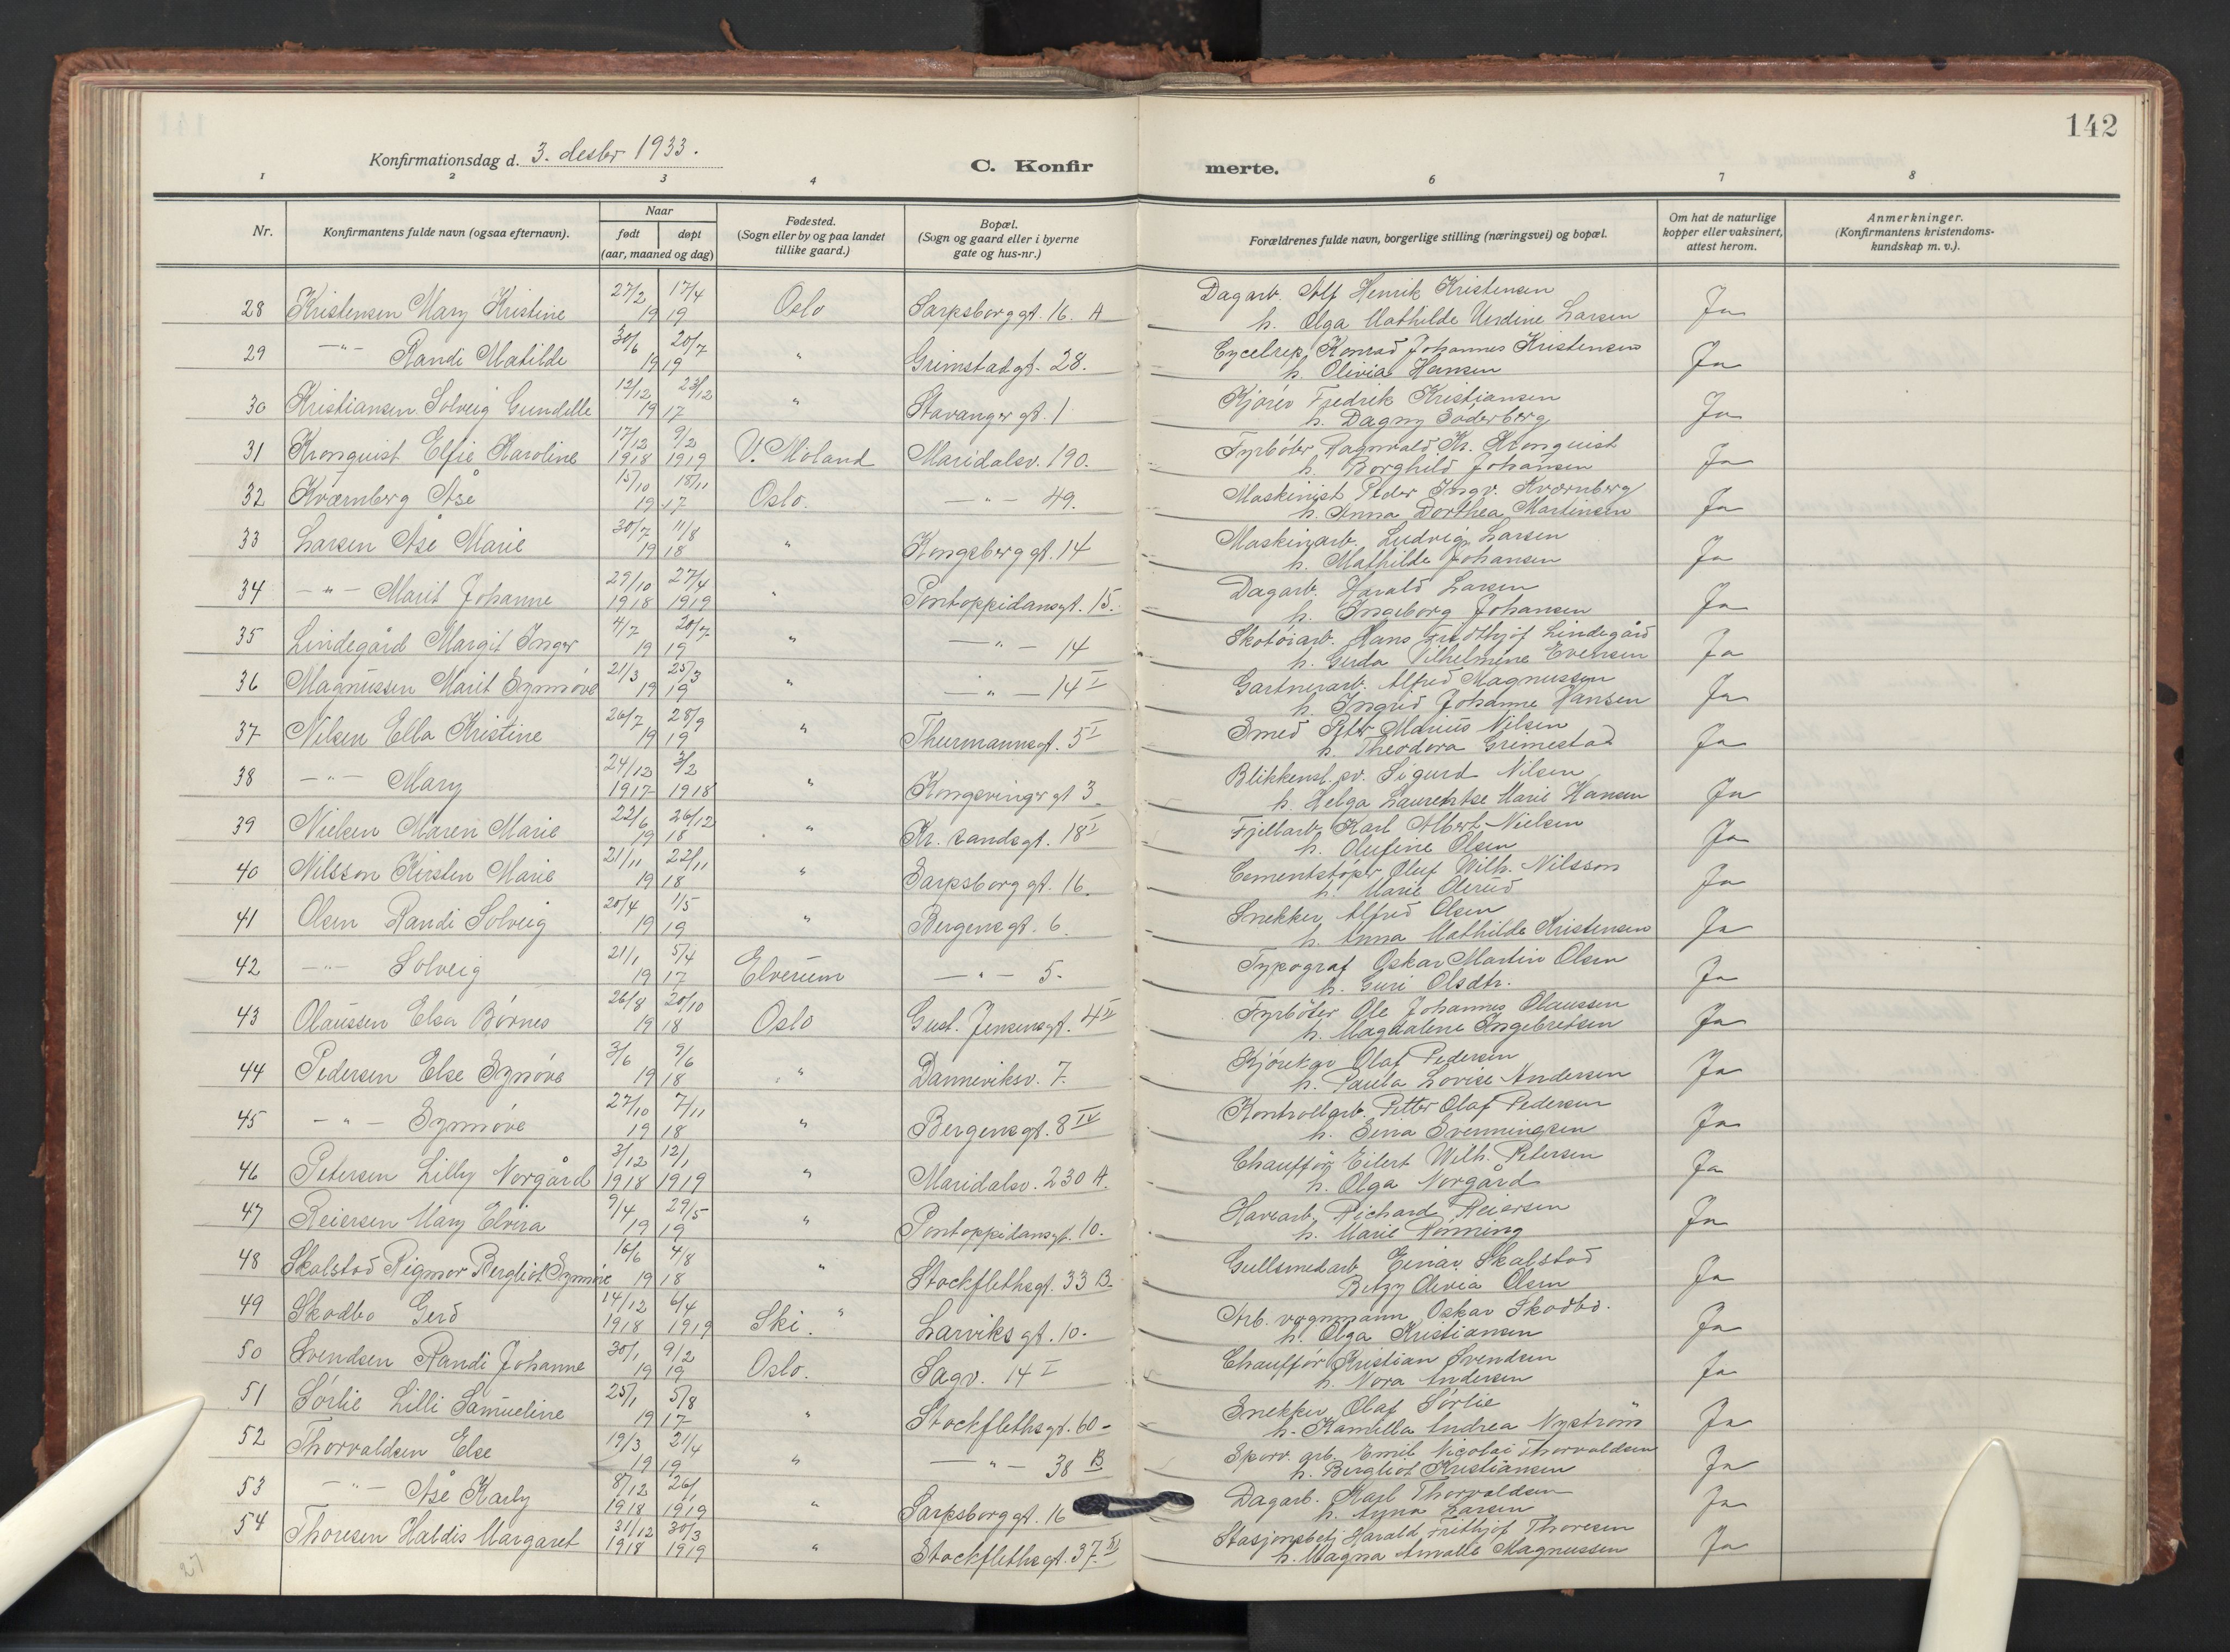 142
Konfirmationsdag d. 3. desbr 1933.
C. Konfirmerte.
1 2 3 4 6 7 8
Nr.
Konfirmantens fulde navn (ogsaa efternavn).
Naar
født døpt
(aar, maaned og dag)
Fødested.
(Sogn eller by og paa landet
tillike gaard.)
Bopæl.
(Sogn og gaard eller i byerne
gate og hus-nr.)
Forældrenes fulde navn, borgerlige stilling (næringsvei) og bopæl.
Om hat de naturlige
kopper eller vaksinert,
attest herom.
Anmerkninger.
(Konfirmantens kristendoms-
kundskap m. v.).
28 Kristensen Mary Kristine 27/2 17/4 1919 Oslo Sarpsborggt. 16. A Dagarb. Alf Henrik Kristensen
h. Olga Mathilde Larsen Ja
29 -"- Randi Matilde 30/6 20/7 1919 " Grimstadgt. 28. Konrad Johannes Kristensen
h. Olivia Hansen Ja
30 Kristiansen Solveig Gundelle 12/12 23/12 1917 " Stavangergt. 1 Fredrik Kristiansen
h. Dagny Søderberg Ja
31 Kronquist Elfie Karoline 17/12 1918 9/2 1919 V. Moland Maridalsv. 190. Fyrbøter Ragnvald Kr. Kronquist
h. Borghild Johansen Ja
32 Kværnberg Åse 15/10 18/11 1917 Oslo. -"- 49. Maskinist Peder Ingv. Kværnberg
h. Anna Dorthea Martinsen Ja
33 Larsen Åse Marie 30/7 11/8 1918 " Kongsberggt. 14 Maskinarb. Ludvig Larsen
h. Mathilde Johansen Ja
34 -"- Marit Johanne 29/10 1918 27/4 1919 " Pontoppidansgt. 15. Dagarb. Harald Larsen
h. Ingeborg Johansen Ja
35 Lindegård Margit Inger 4/7 20/7 1919 " -"- 14 Skotøiarb. Hans Fridthjof Lindegård
h. Gerda Vilhelmine Evensen Ja
36 Magnussen Marit Synnøve 21/3 25/3 1919 " -"- 14 I Gartnerarb. Alfred Magnussen
h. Ingrid Johanne Hansen Ja
37 Nilsen Ella Kristine 26/7 28/9 1919 " Thurmannsgt. 5 I Smed Petter Marius Nilsen
h. Theodora Grimestad Ja
38 -"- Mary 24/12 1917 3/2 1918 " Kongsvingergt 3. Blikkensl. sv. Sigurd Nilsen
h. Helga Laurentse Marie Hansen Ja
39 Nielsen Maren Marie 22/6 26/12 1918 " Kr. sandsgt. 18 I Fjellarb. Karl Albert Nielsen
h. Olufine Olsen Ja
40 Nilsson Kirsten Marie 21/11 22/11 1918 " Sarpsborggt. 16. Cementstøper Oluf Wilh. Nilsson
h. Marie Ja
41 Olsen Randi Solveig 20/4 1/5 1919 " Bergensgt. 6. Snekker Alfred Olsen
h. Anna Mathilde Kristensen Ja
42 -"- Solveig 21/1 5/4 1917 Elverum -"- 5. Typograf Oskar Martin Olsen
h. Guri Olsdtr. Ja
43 Olaussen Elsa Børnes 26/8 20/10 1918 Oslo Gust. Jensensgt. 4 Fyrbøter Ole Johannes Olaussen
h. Magdalene Ingebretsen Ja
44 Pedersen Else Synøve 3/6 9/6 1918 " Danneviksv. 7. Olaf Pedersen
h. Paula Lovise Andersen Ja
45 -"- Synnøve 27/10 7/11 1918 " Bergensgt. 8 IV Kontrollarb. Petter Olaf Pedersen
h. Svenningsen Ja
46 Petersen Lilly Norgård 3/12 1918 12/1 1919 " Maridalsv. 230 A. Chauffør Eilert Wilh. Petersen
h. Olga Norgård Ja
47 Reiersen Mary Elvira 9/4 29/5 1919 " Pontoppidansgt. 10. Havearb. Richard Reiersen
h. Marie Rønning Ja
48 Skalstad Rigmor Bergliot Synnøve 16/6 4/8 1918 " Stockflethsgt. 33 B. Gullsmedarb. Einar Skalstad
Betzy Olivia Olsen Ja
49 Skodbo Gerd 14/12 1918 6/4 1919 Ski. " Larviksgt. 10. Arb. vognmann Oskar Skodbo.
h. Olga Kristiansen Ja
50 Svendsen Randi Johanne 30/1 9/2 1919 Oslo. Sagv. 14 I Chauffør Kristian Svendsen
h. Nora Andersen Ja
51 Sørlie Lilli Samueline 25/1 5/8 1917 " Stockflethsgt. 60 Snekker Olaf Sørlie
h. Kamilla Andrea Nystrøm Ja
52 Thorvaldsen Else 19/3 21/4 1919 " -"- 38 B Sporv. arb. Emil Nicolai Thorvaldsen
h. Bergliot Kristiansen Ja
53 -"- Åse Karly 8/12 1918 26/1 1919 " Sarpsborggt. 16 Dagarb. Karl Thorvaldsen
h. Anna Larsen Ja
54 Thoresen Haldis Margaret 31/12 1918 30/3 1919 " Stockflethsgt. 37. Stasjonsbetj. Harald Frithjof Thoresen
h. Magna Amalie Magnussen Ja
27